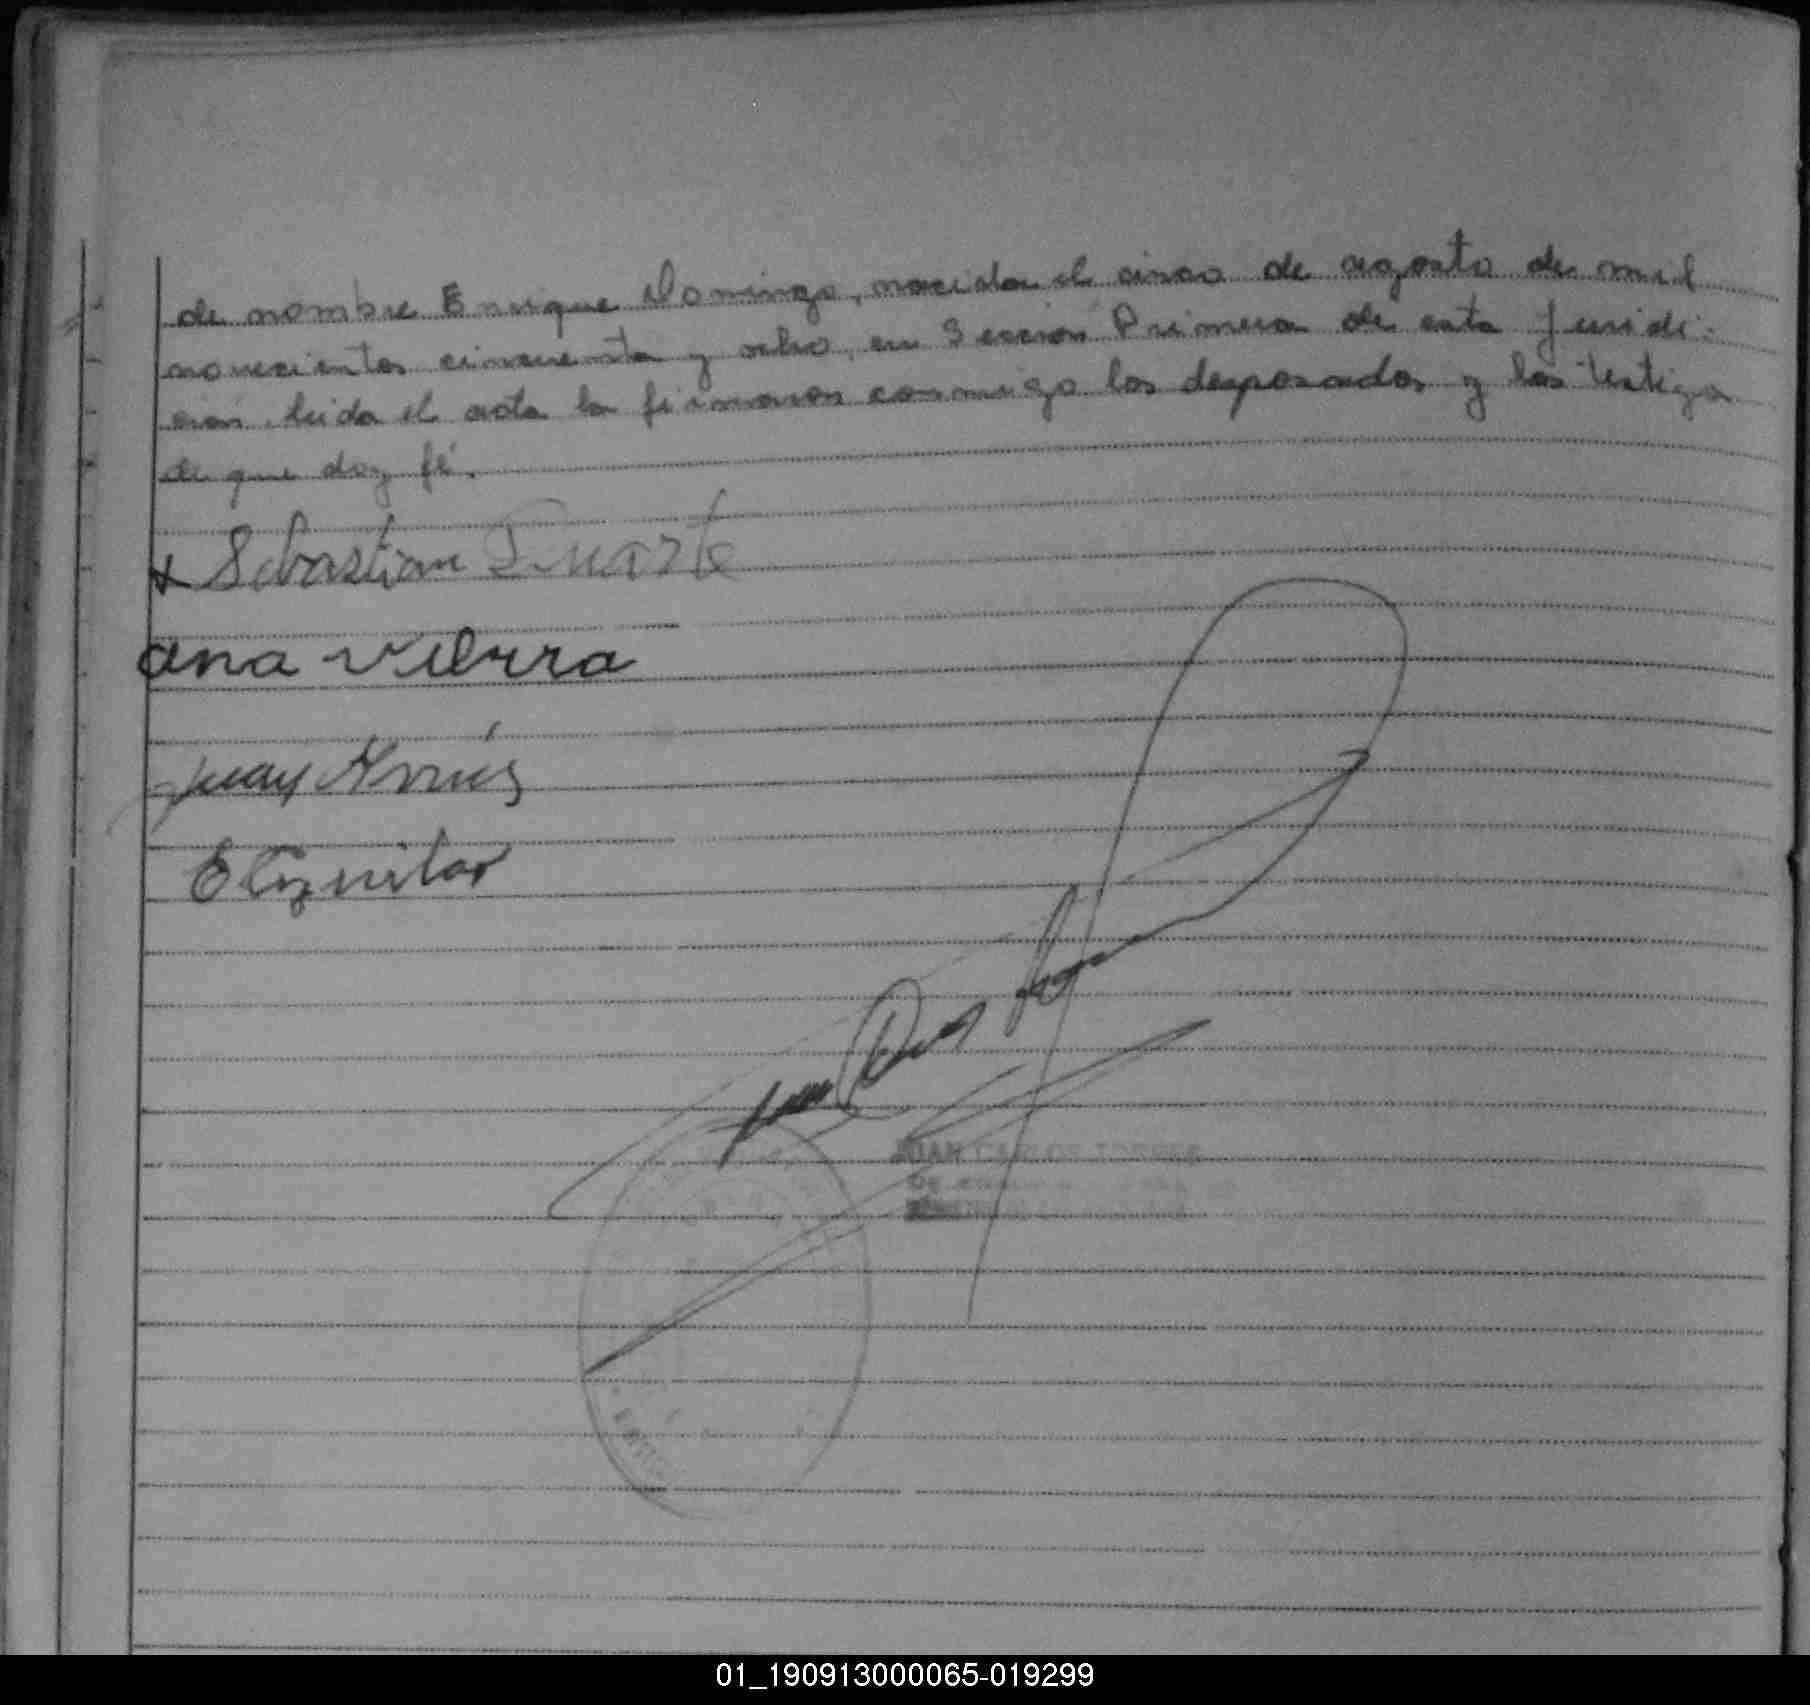 de nombre Enrique Domingo, nacido el cinco de agosto de mil
novecientos cincuenta y ocho, en Sección Primera de esta Jurisdi-
ción. leida el acta la firmaron conmigo los desposados y los testigos
de que doy fé.
x Sebastian Duarte
ana vierra
Juan
E Aguilar
JUAN CARLOS TORRES
01_190913000065-019299